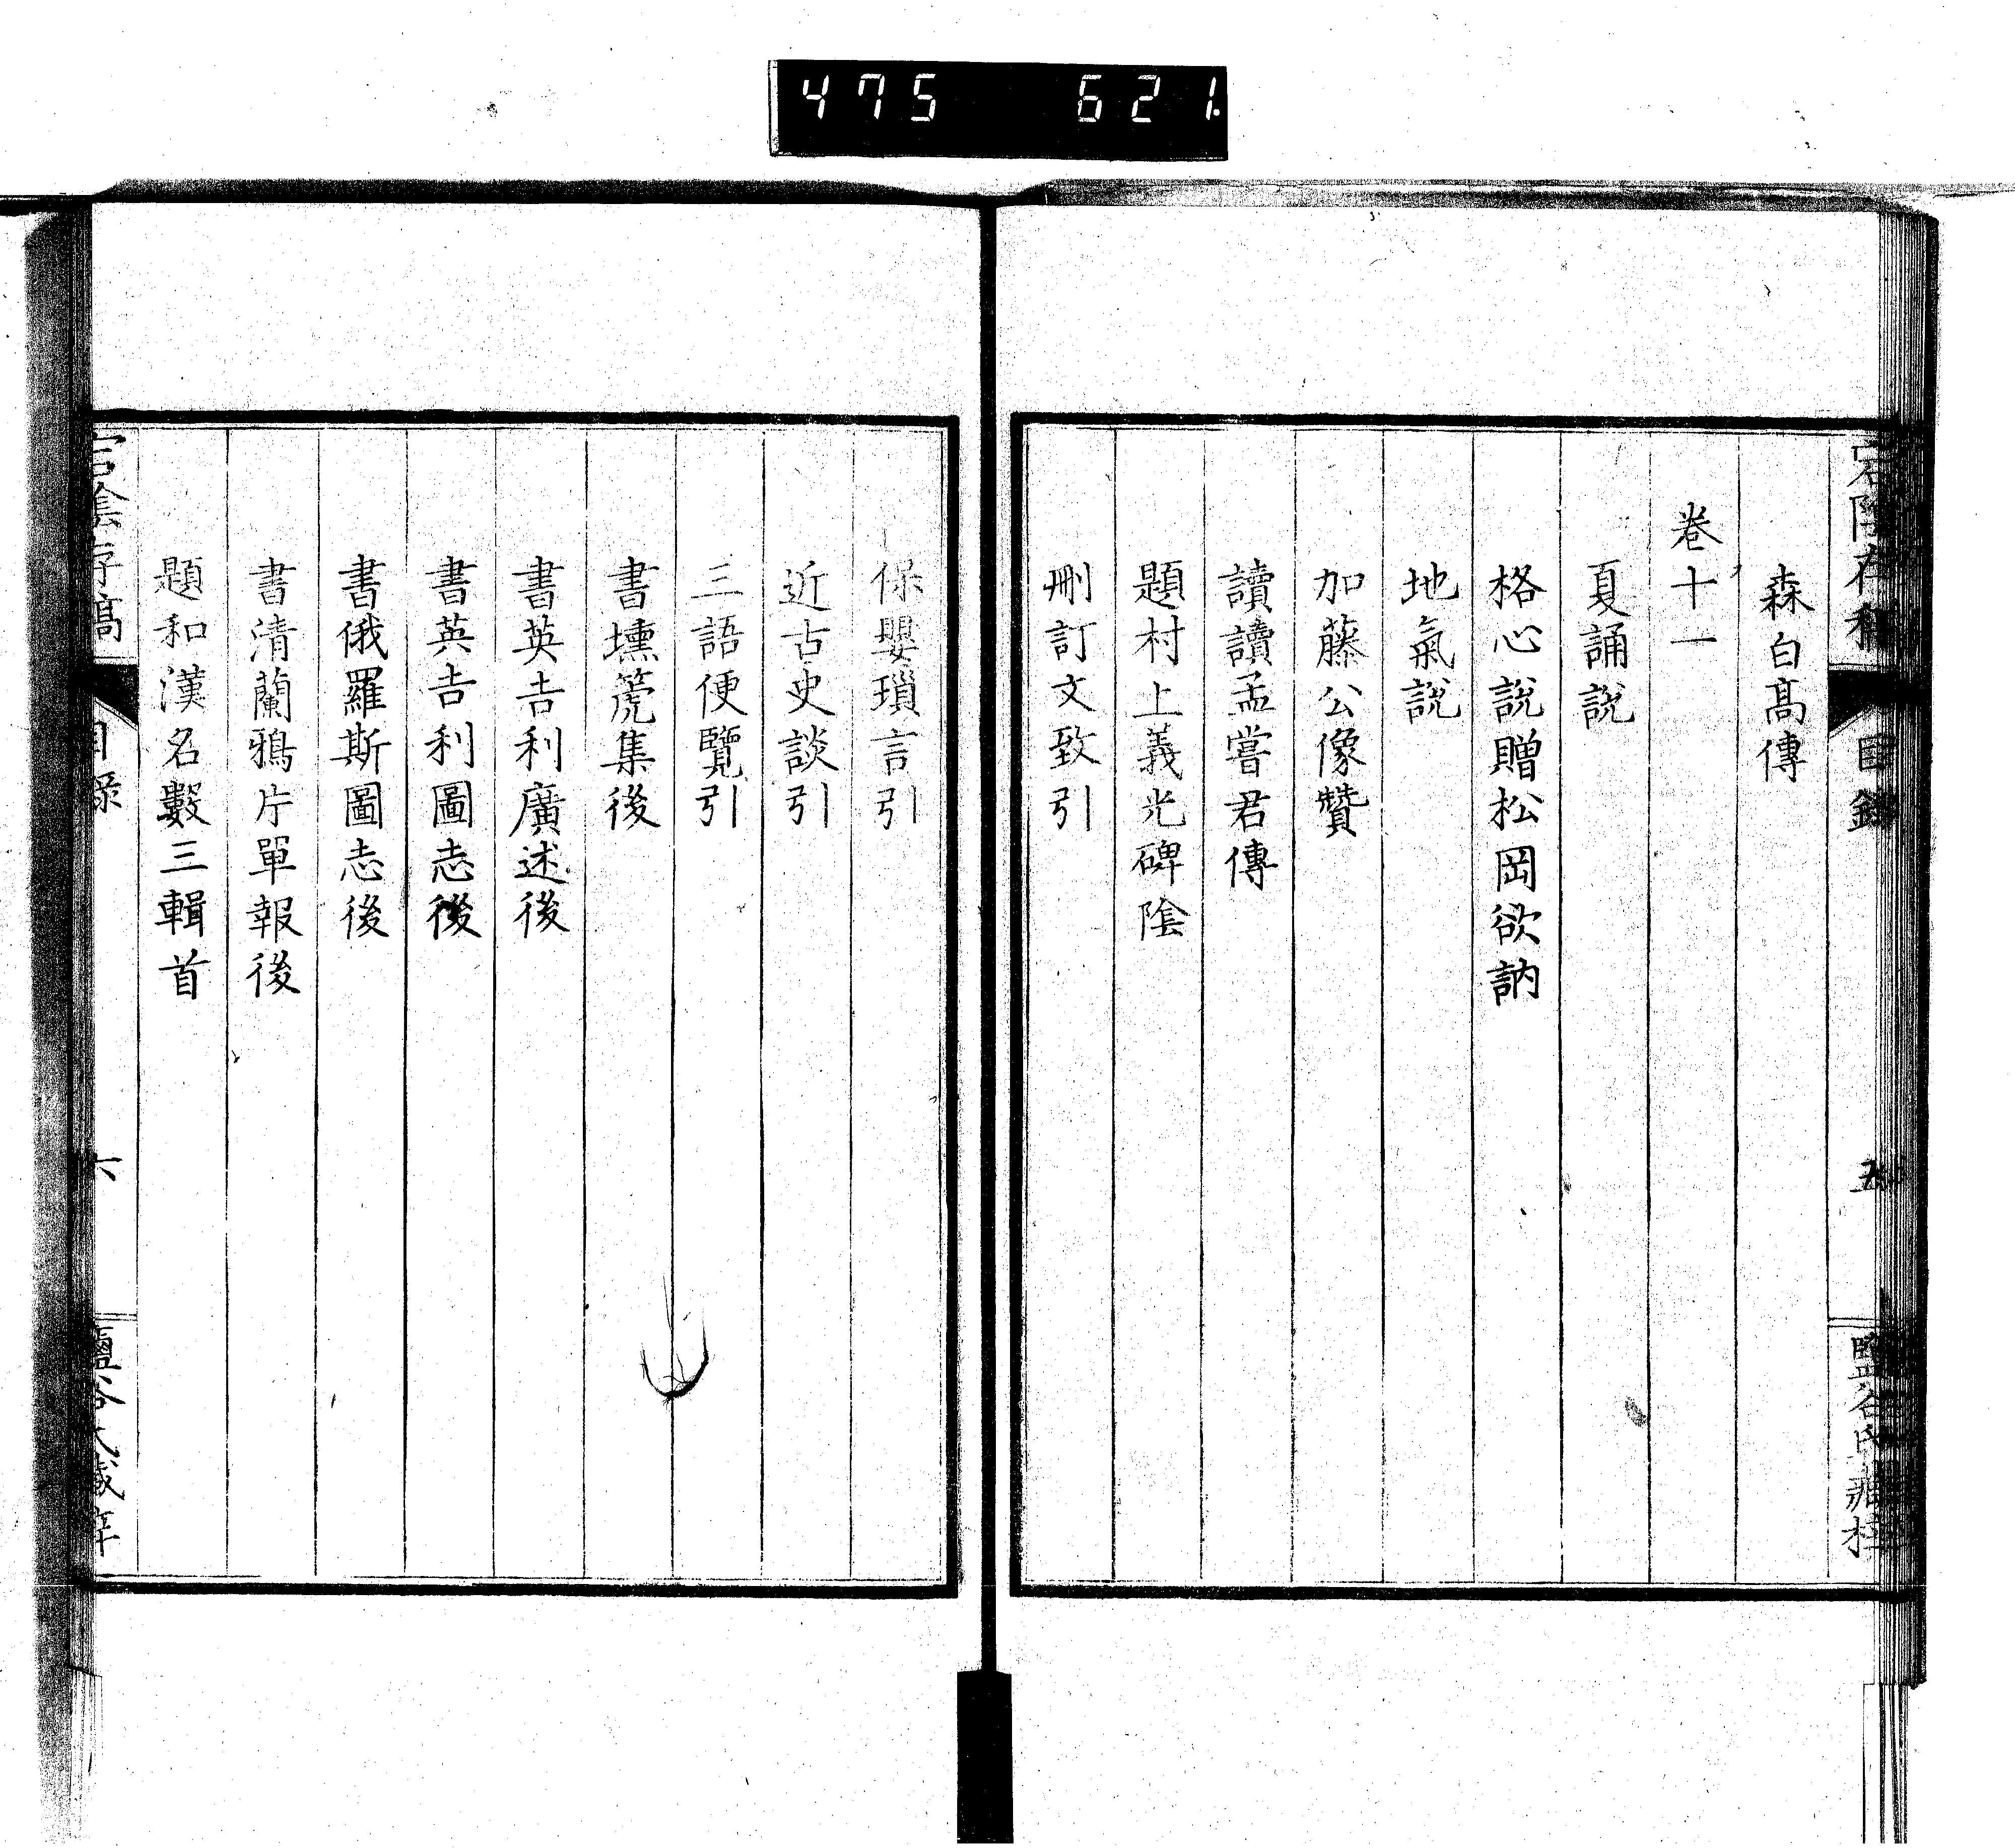 475 621.
宕陰存稿 目録 五 鹽谷氏藏梓
森白髙傳
卷十一
夏誦說
格心說贈松岡欲訥
地氣說
加藤公像贊
讀讀孟嘗君傳
題村上義光碑陰
刪訂文致引
保嬰瑣言引
近古史談引
三語便覽引
書壎箎集後
書英吉利廣述後
書英吉利圖志後
書俄羅斯圖志後
書清蘭鴉片單報後
題和漢名數三輯首
宕陰存稿 目録 六 鹽谷氏藏梓